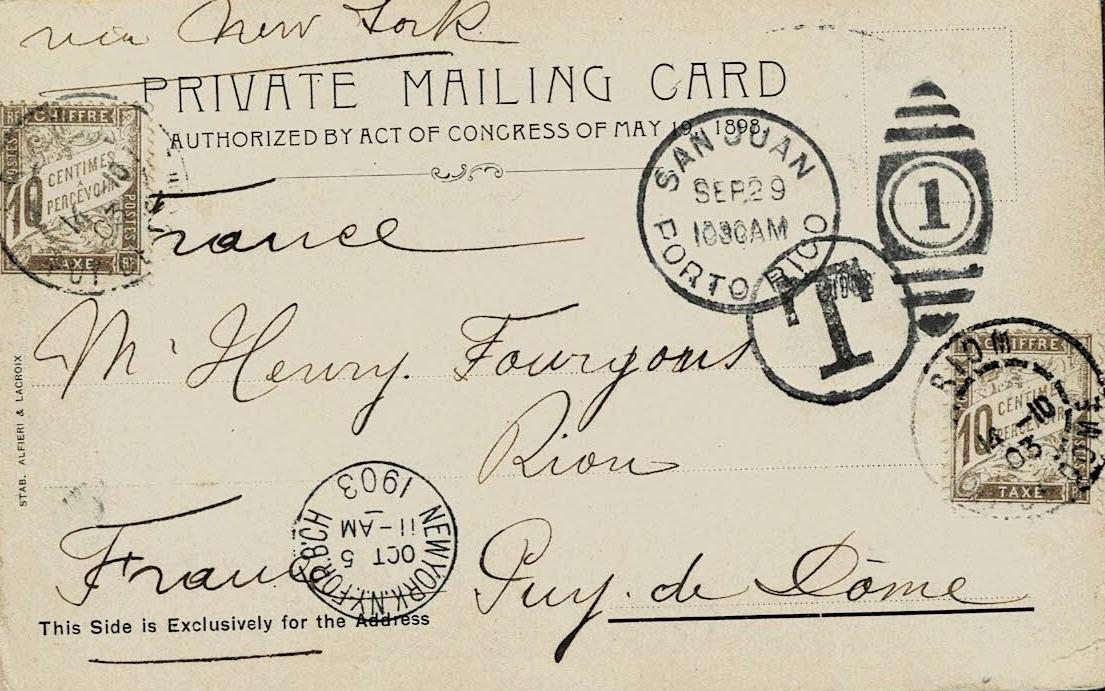 via New York
PRIVATE MAILING CARD
AUTHORIZED BY ACT OF CONGRESS OF MAY 19, 1898.
RF CHIFFRE
POSTES
10 CENTIMES
À
PERCEVOIR
POSTES
TAXE RF
14 -10
03
SAN JUAN
SEP 29
1030AM
PORTO RICO
1
T
France
Mr Henry. Fourgous
Riom
STAB. ALFIERI & LACROIX
RIOM
CHIFFRE
10 CENTIM
PERCEVOIR
TAXE
14 -10
03
NEW YORK, N.Y. FOR. B'CH
OCT 5
11-AM
1903
France
Puy. de Dôme
This Side is Exclusively for the Address